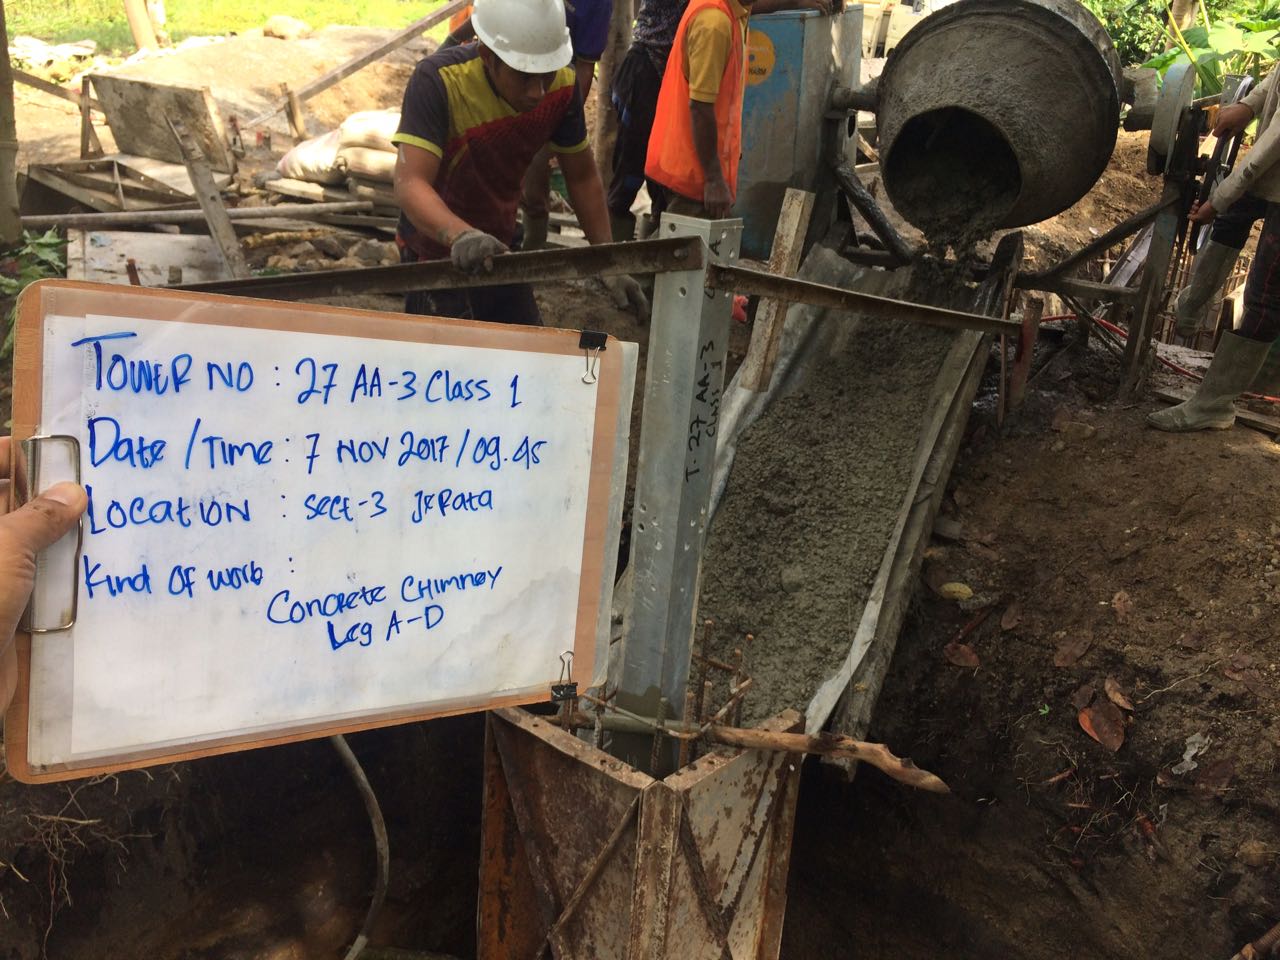 TOWER NO : 27 AA-3 Class 1
Date /Time : 7 NOV 2017 / 09.45
LOCATION : Sect-3 JePata
Kind OF work :
Concrete Chimney
Leg A-D
T. 27 AA-3
Class 1
A